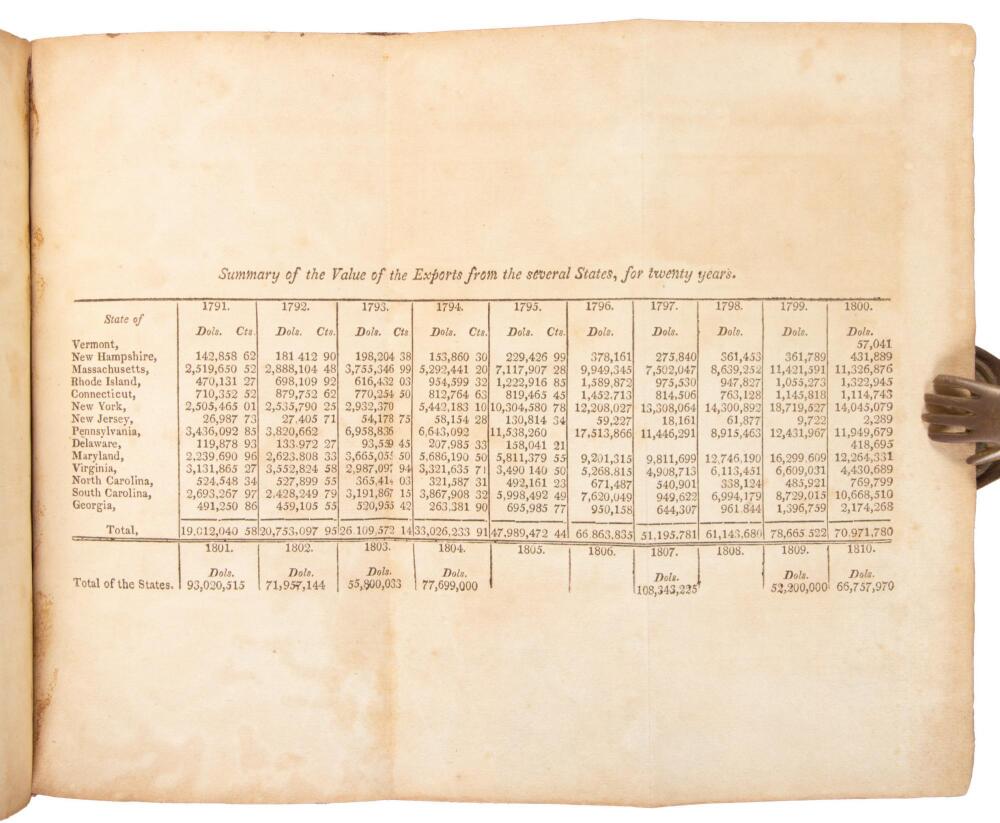 Summary of the Value of the Exports from the several States, for twenty years.
State of 1791. 1792. 1793. 1794. 1795. 1796. 1797. 1798. 1799. 1800.
Dols. Cts. Dols. Cts. Dols. Cts Dols. Cts. Dols. Cts Dols. Dols. Dols. Dols. Dols.
Vermont, 57,041
New Hampshire, 142,858 62 181 412 90 198,204 38 153,860 30 229,426 99 378,161 275,840 361,453 361,789 431,889
Massachusetts, 2,519,650 52 2,888,104 48 3,755,346 99 5,292,441 20 7,117,907 28 9,949,345 7,502,047 8,639,252 11,421,591 11,326,876
Rhode Island, 470,131 27 698,109 92 616,432 03 954,599 32 1,222,916 85 1,589,872 975,530 947,827 1,055,273 1,322,945
Connecticut, 710,352 52 879,752 62 770,254 50 812,764 63 819,465 45 1,452,713 814,506 763,128 1,145,818 1,114,743
New York, 2,505,465 01 2,535,790 25 2,932,370 5,442,183 10 10,304,580 78 12,208,027 13,308,064 14,300,892 18,719,527 14,045,079
New Jersey, 26,987 73 27,405 71 54,178 75 58,154 28 130,814 34 59,227 18,161 61,877 9,722 2,289
Pennsylvania, 3,436,092 85 3,820,662 6,958,836 6,643,092 11,538,260 17,513,866 11,446,291 8,915,463 12,431,967 11,949,679
Delaware, 119,878 93 133,972 27 93,559 45 207,985 33 158,041 21 418,695
Maryland, 2,239,690 96 2,623,808 33 3,665,055 50 5,686,190 50 5,811,379 55 9,201,315 9,811,699 12,746,190 16,299,609 12,264,331
Virginia, 3,131,865 27 3,552,824 58 2,987,097 94 3,321,635 71 3,490 140 50 5,268,815 4,908,713 6,113,451 6,609,031 4,430,689
North Carolina, 524,548 34 527,899 55 03 321,587 31 492,161 23 671,487 540,901 338,124 485,921 769,799
South Carolina, 2,693,267 97 2,428,249 79 3,191,867 15 3,867,908 32 5,998,492 49 7,620,049 949,622 6,994,179 8,729,015 10,668,510
Georgia, 491,250 86 459,105 55 520,955 42 263,381 90 695,985 77 950,158 644,307 961.844 1,396,759 2,174,268
Total, 19,012,040 58 20,753,097 95 26 109,572 14 33,026,233 91 47,989,472 44 66 863,835 51,195,781 61,143,680 78,665 522 70,971,780
1801. 1802. 1803. 1804. 1805. 1806. 1807. 1808. 1809. 1810.
Dols. Dols. Dols. Dols. Dols. Dols. Dols.
Total of the States. 93,020,515 71,957,144 55,800,033 77,699,000 108,343,225 52,200,000 66,757,970